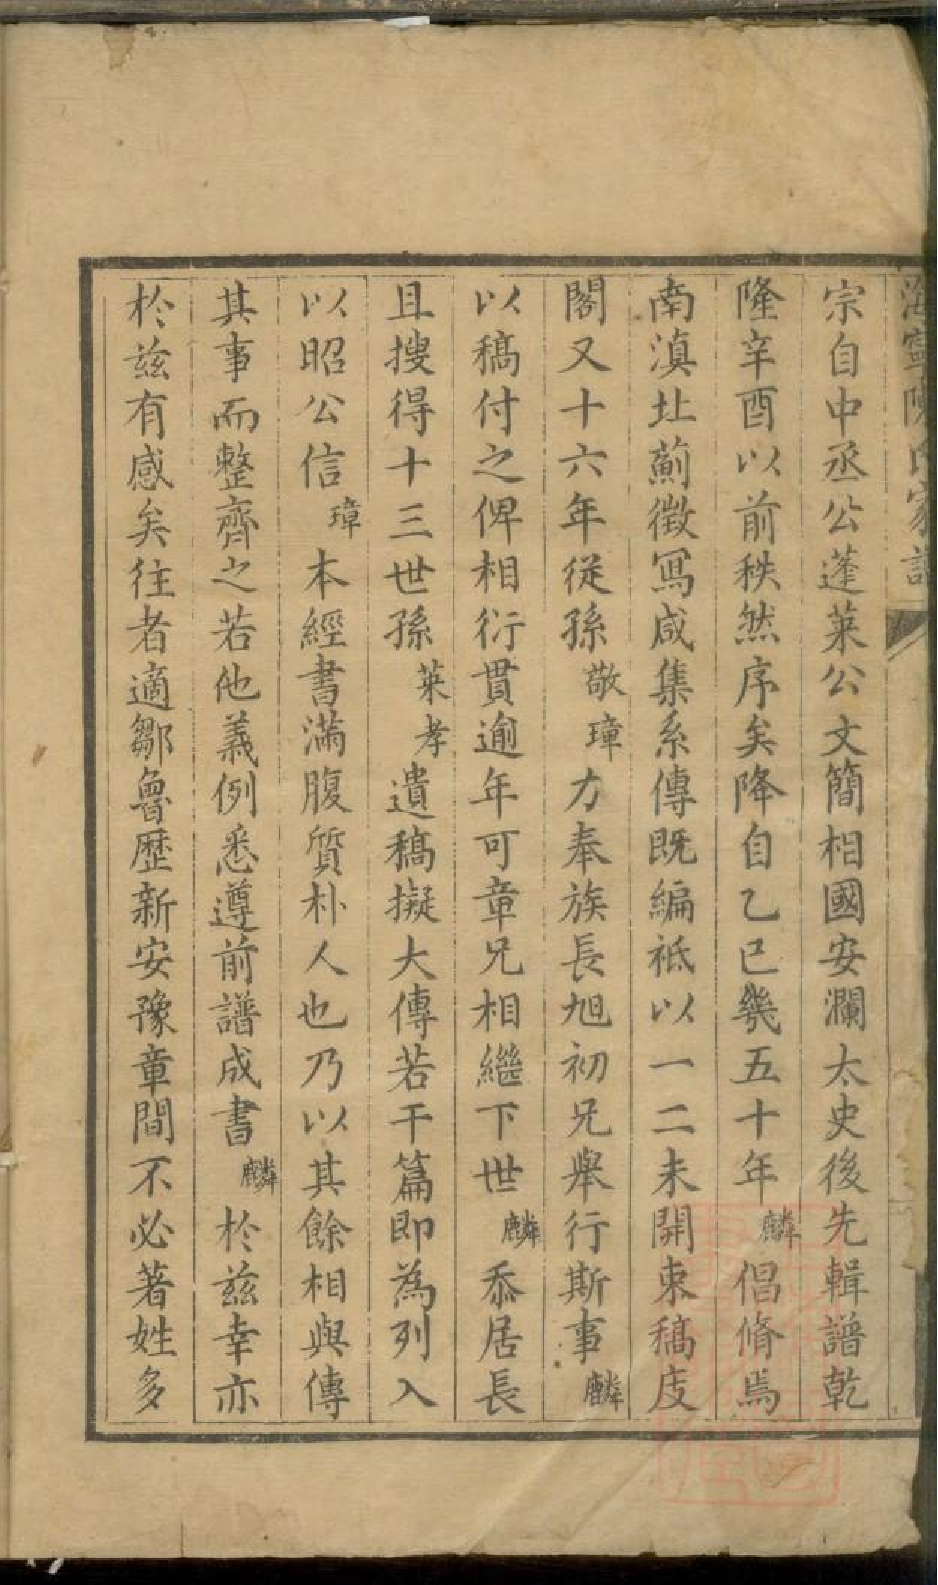 海寧陳氏家譜
宗自中丞公蓬萊公文簡相國安瀾太史後先輯譜乾
隆辛酉以前秩然序矣降自乙巳幾五十年麟倡脩焉
南滇北薊徵寫咸集系傳既編祗以一二未開束稿庋
閣又十六年從孫敬璋力奉族長旭初兄舉行斯事麟
以稿付之俾相衍貫逾年可章兄相繼下世麟忝居長
且搜得十三世孫萊孝遺稿擬大傳若干篇即為列入
以昭公信璋本經書滿腹質朴人也乃以其餘相與傳
其事而整齊之若他義例悉遵前譜成書麟於茲幸亦
於茲有感矣往者適鄒魯歷新安豫章間不必著姓多